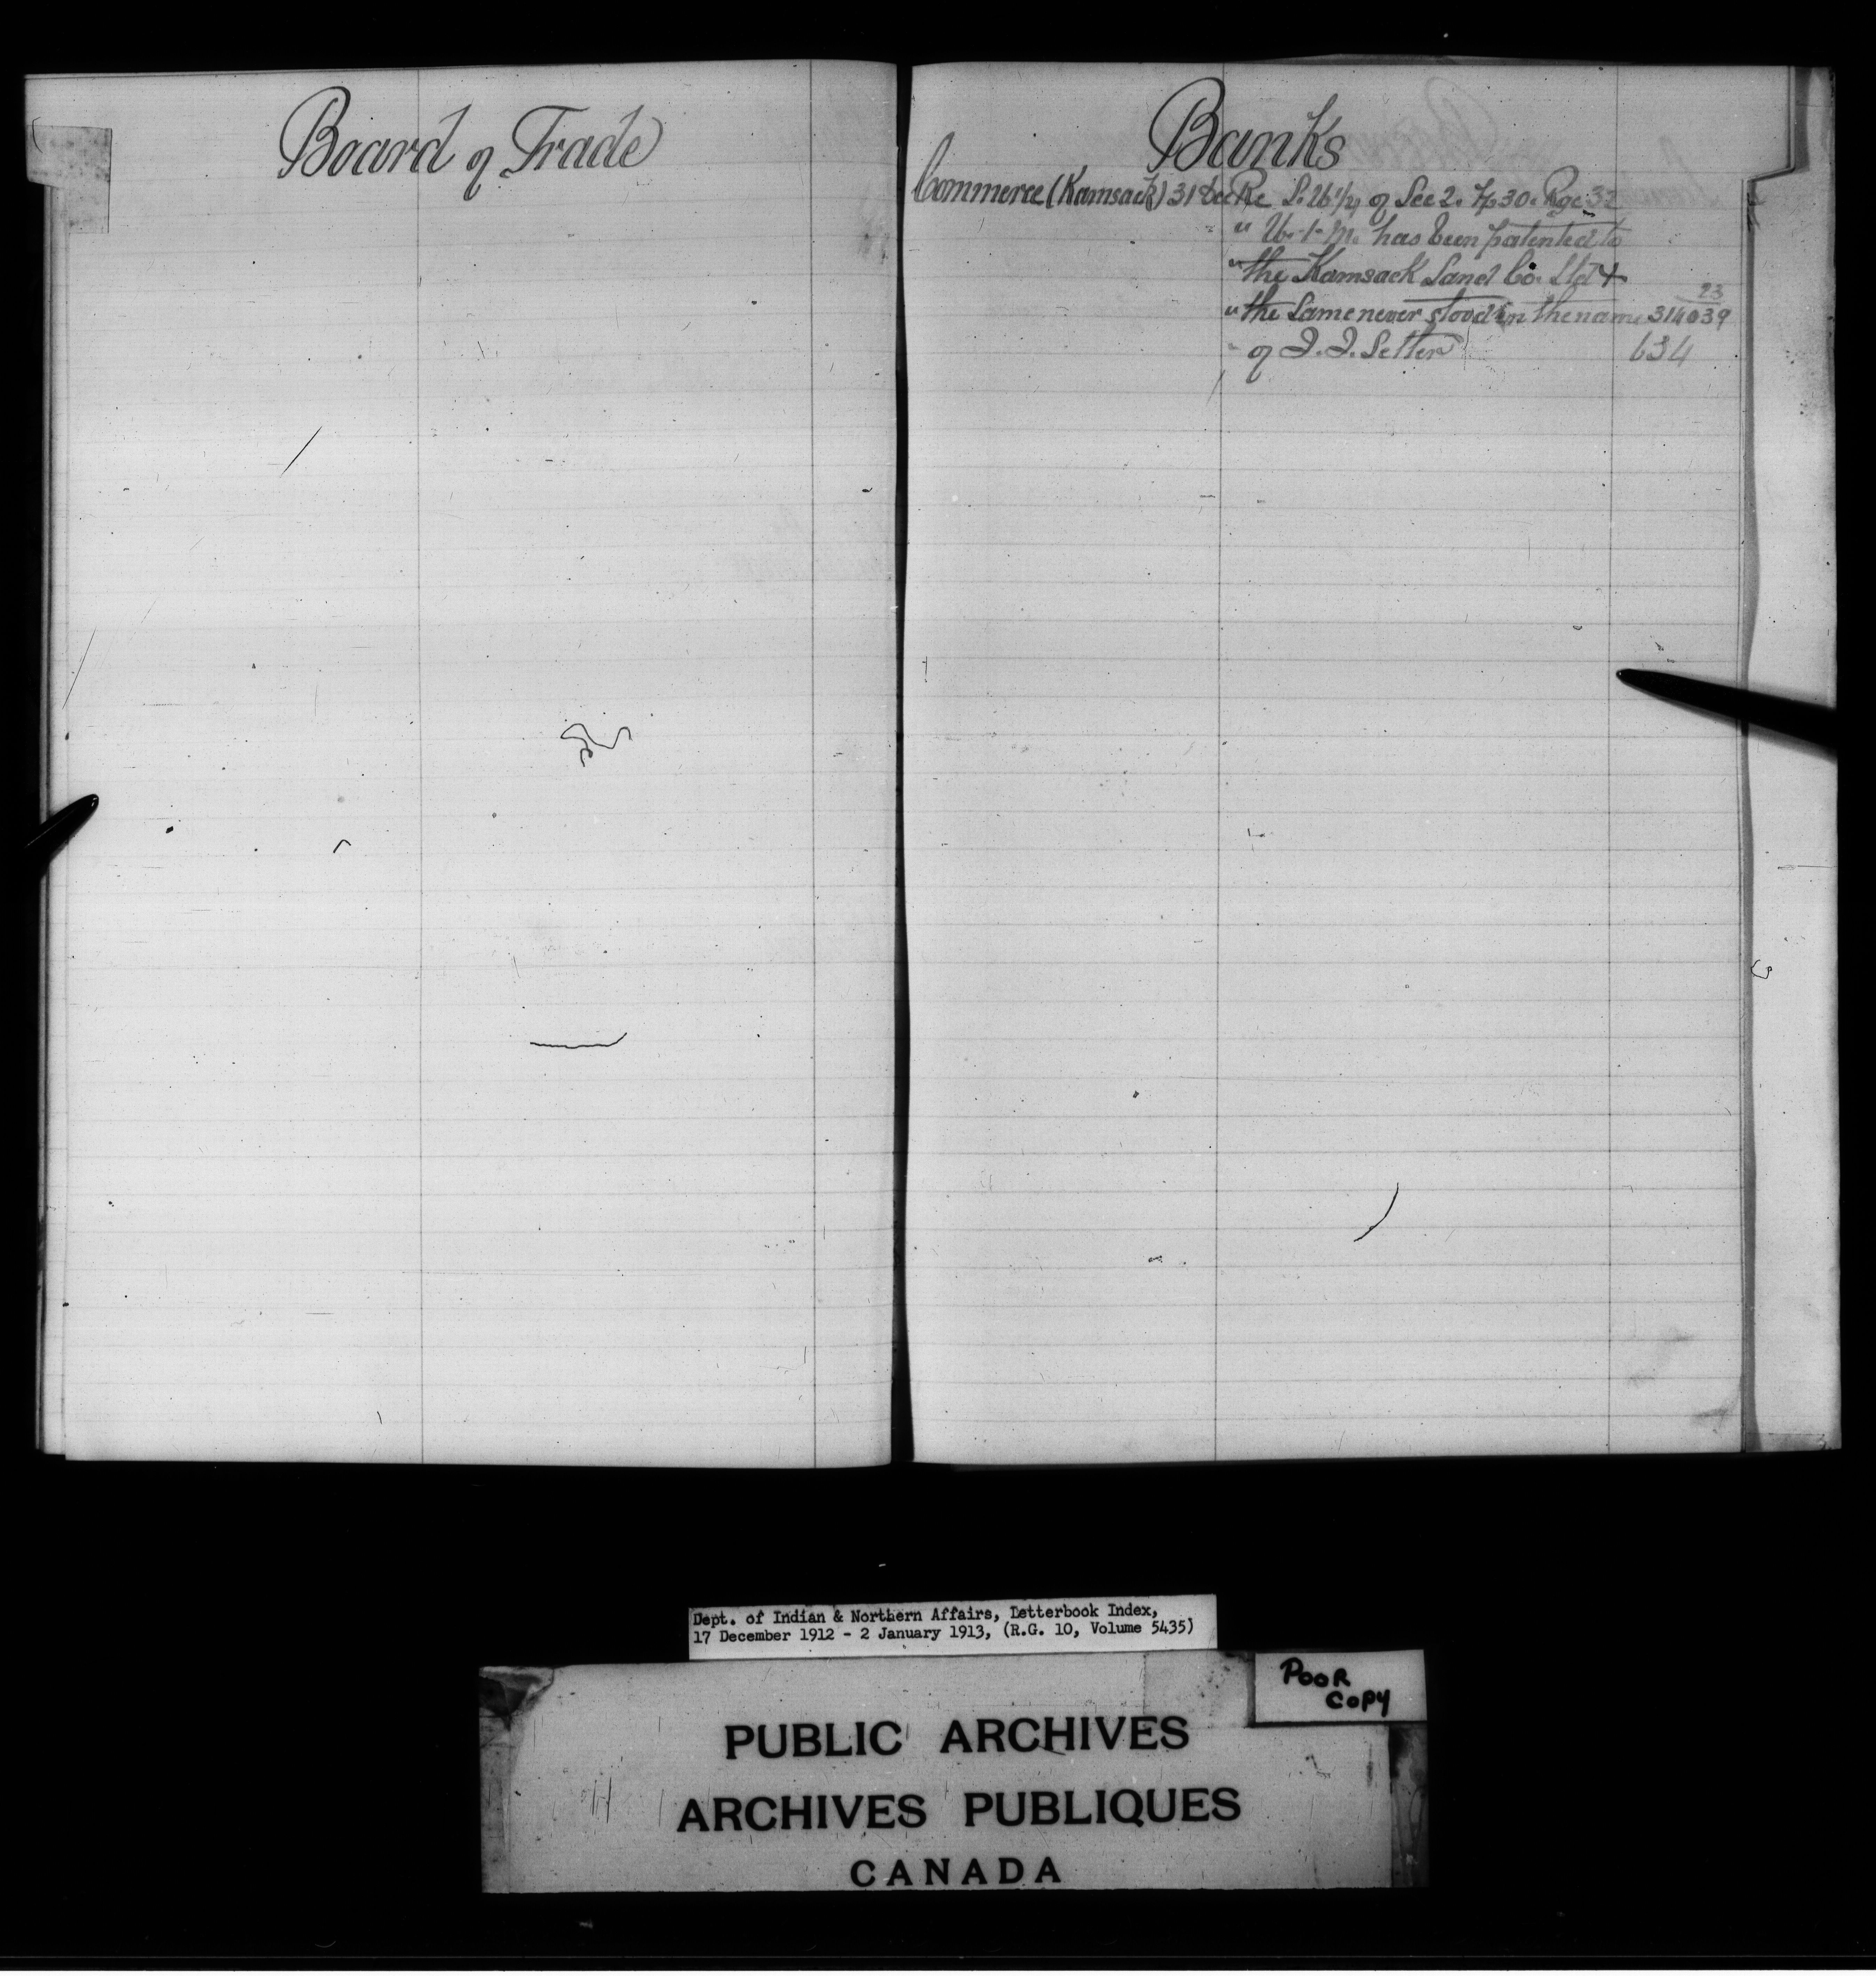 Board of Trade
Banks
Commerce (Kamsack) 31 Dec Re S.W 1/4 of Sec 2. Tp 30. Rge 32
" W-1-M. has been patented to
" the Kamsack Land Co. Ltd +
23
" the same never stood in the name 314039
" of J. J. Setter 634
Dept. of Indian & Northern Affairs, Letterbook Index,
17 December 1912 - 2 January 1913, (R.G. 10, Volume 5435)
POOR
COPY
PUBLIC ARCHIVES
ARCHIVES PUBLIQUES
CANADA